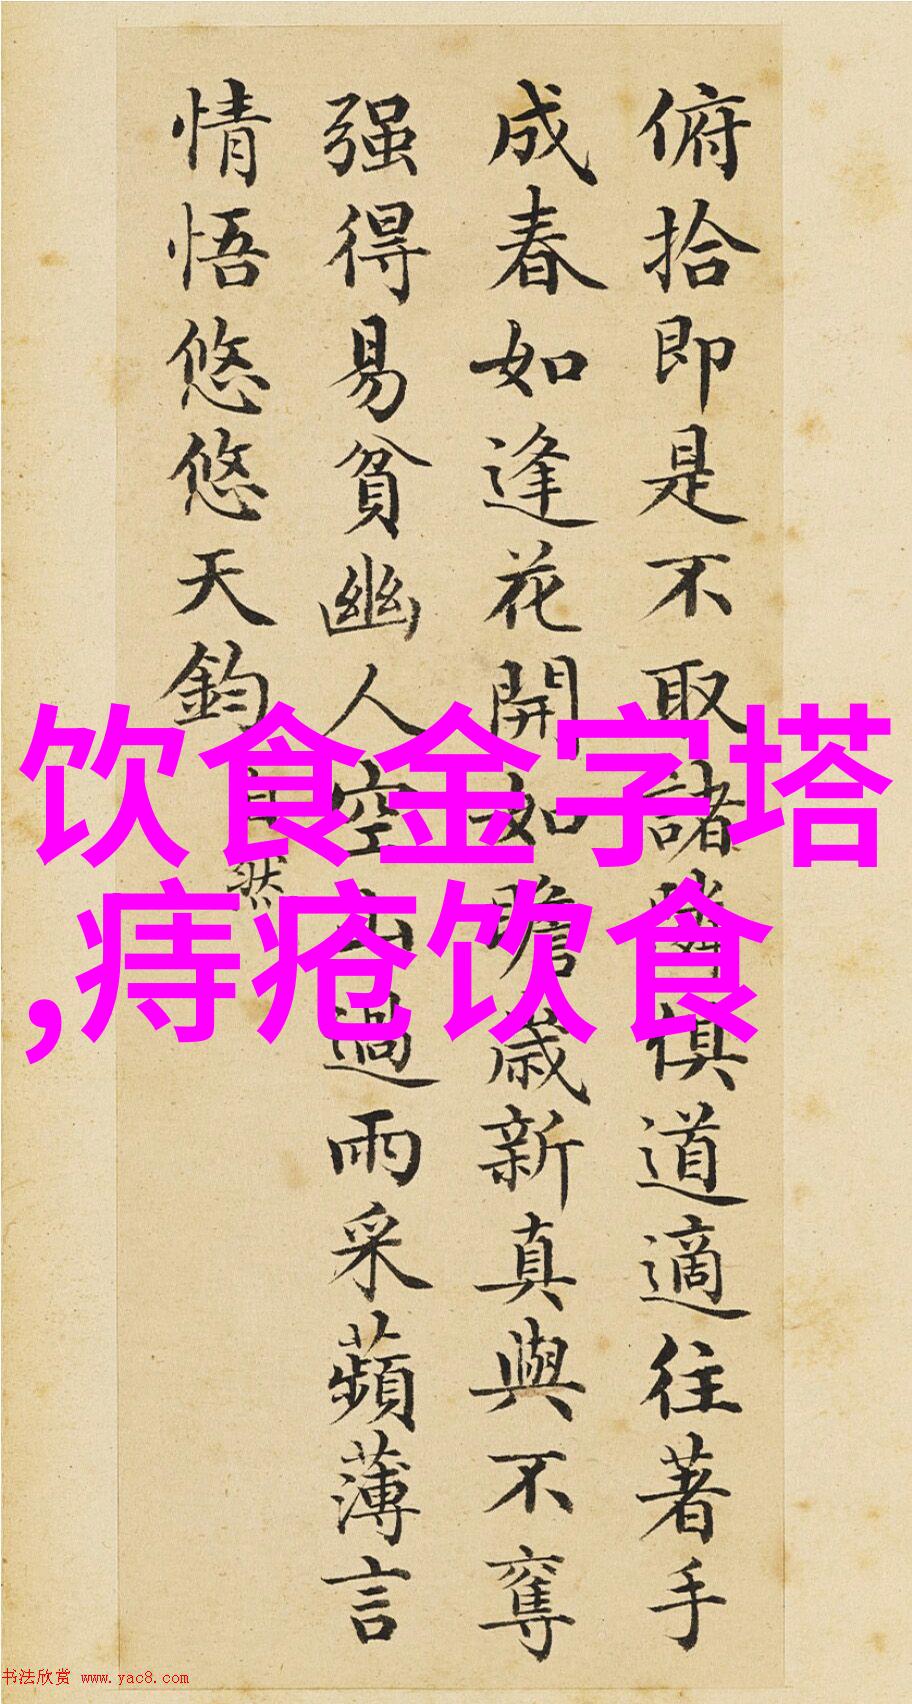 俯拾即是不取諸鄰俱道適往著手
成春如逢花開如瞻歲新真與不奪
强得易貧幽人空山過雨采蘋薄言
情悟悠悠天鈞
自然
饮食金字塔
,痔疮饮食
书法欣赏 www.yac8.com